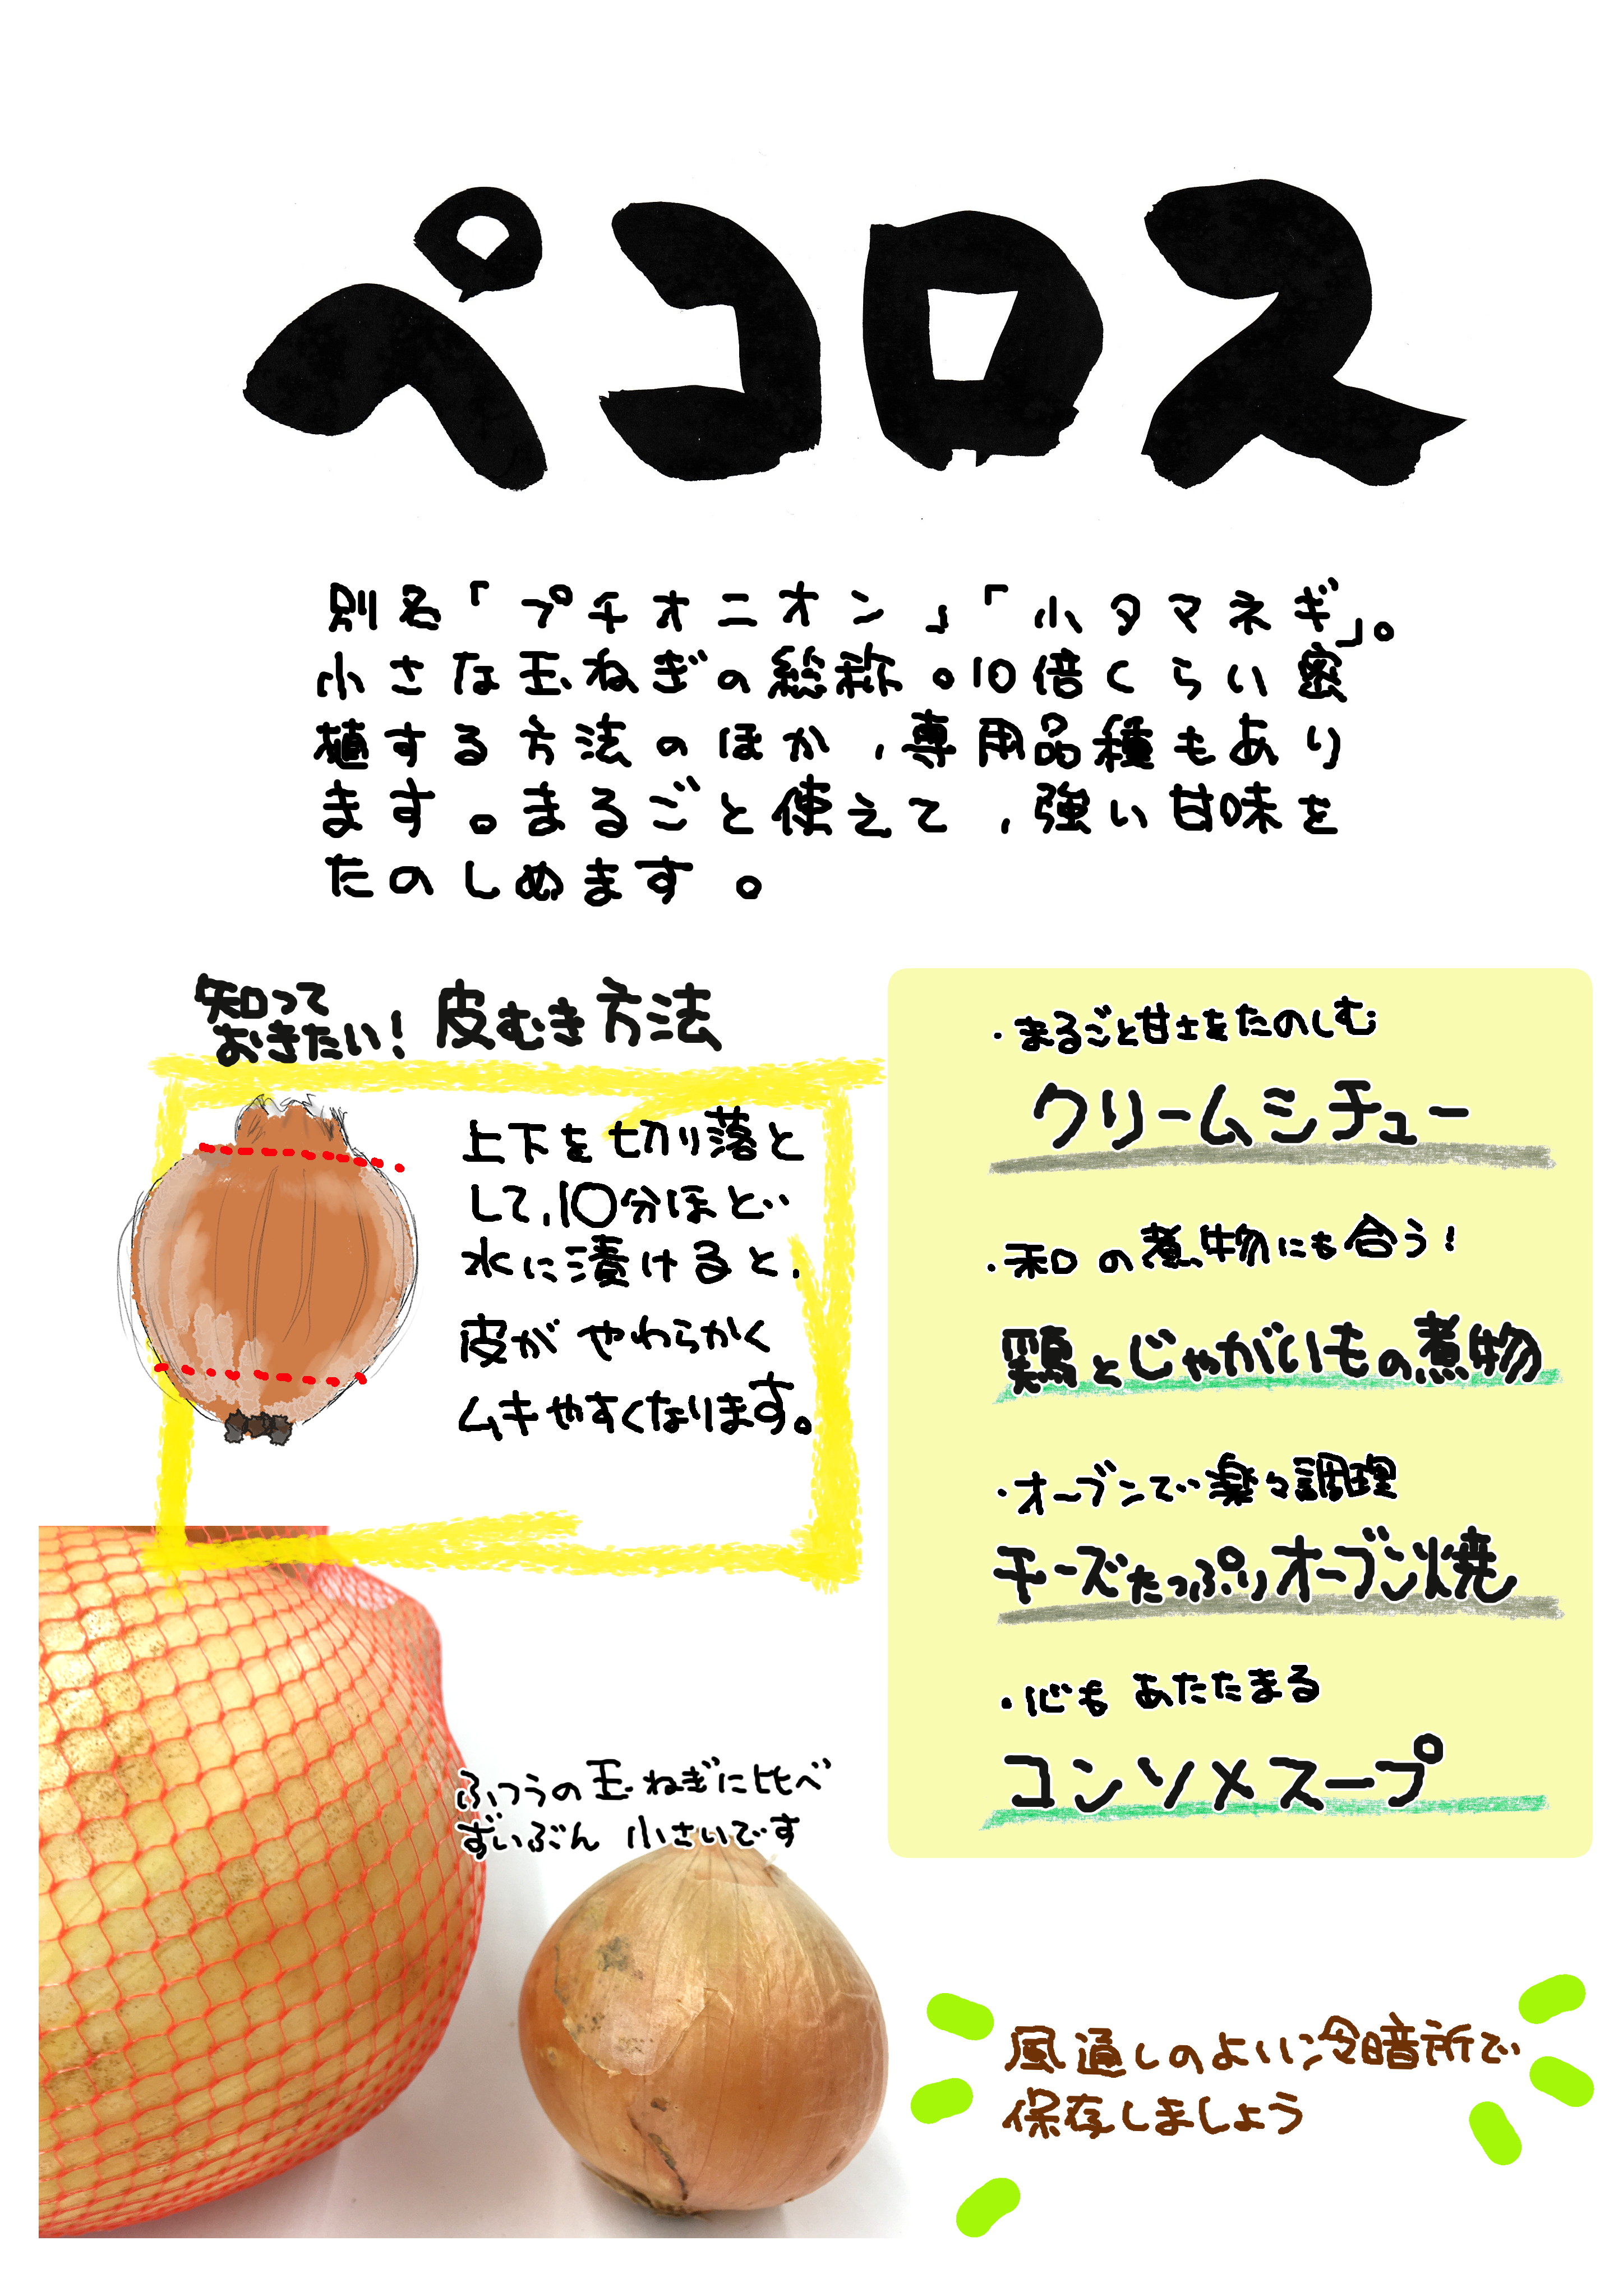 ペコロス
別名「プチオニオン」「小タマネギ」。
小さな玉ねぎの総称。10倍くらい密
植する方法のほか、専用品種もあり
ます。まるごと使えて、強い甘味を
たのしめます。
知って
おきたい！皮むき方法
上下を切り落と
して、10分ほど
水に漬けると、
皮がやわらかく
ムキやすくなります。
・まるごと甘士をたのしむ
クリームシチュー
・和の煮物にも合う！
鶏とじゃがいもの煮物
・オーブンで楽々調理
チーズたっぷりオーブン焼
・心もあたたまる
コンソメスープ
ふつうの玉ねぎに比べ
ずいぶん小さいです
風通しのよい冷暗所で
保存しましょう